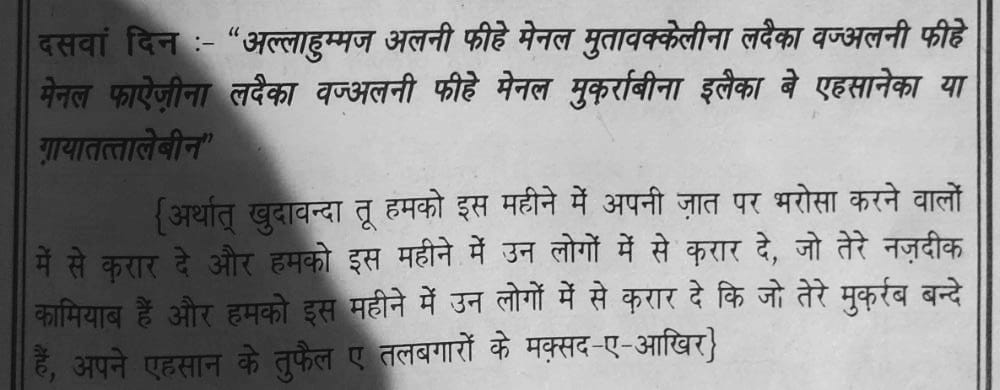 दसवां दिन :- “अल्लाहुम्मज अलनी फीहे मेनल मुतावक्केलीना लदैका वज्अलनी फीहे
मेनल फाऐज़ीना लदैका वज्अलनी फीहे मेनल मुक़र्राबीना इलैका बे एहसानेका या
ग़ायातत्तालेबीन”
{अर्थात् खुदावन्दा तू हमको इस महीने में अपनी ज़ात पर भरोसा करने वालों
में से क़रार दे और हमको इस महीने में उन लोगों में से क़रार दे, जो तेरे नज़दीक
कामियाब हैं और हमको इस महीने में उन लोगों में से क़रार दे कि जो तेरे मुक़र्रब बन्दे
हैं, अपने एहसान के तुफैल ए तलबगारों के मक़्सद-ए-आखिर}